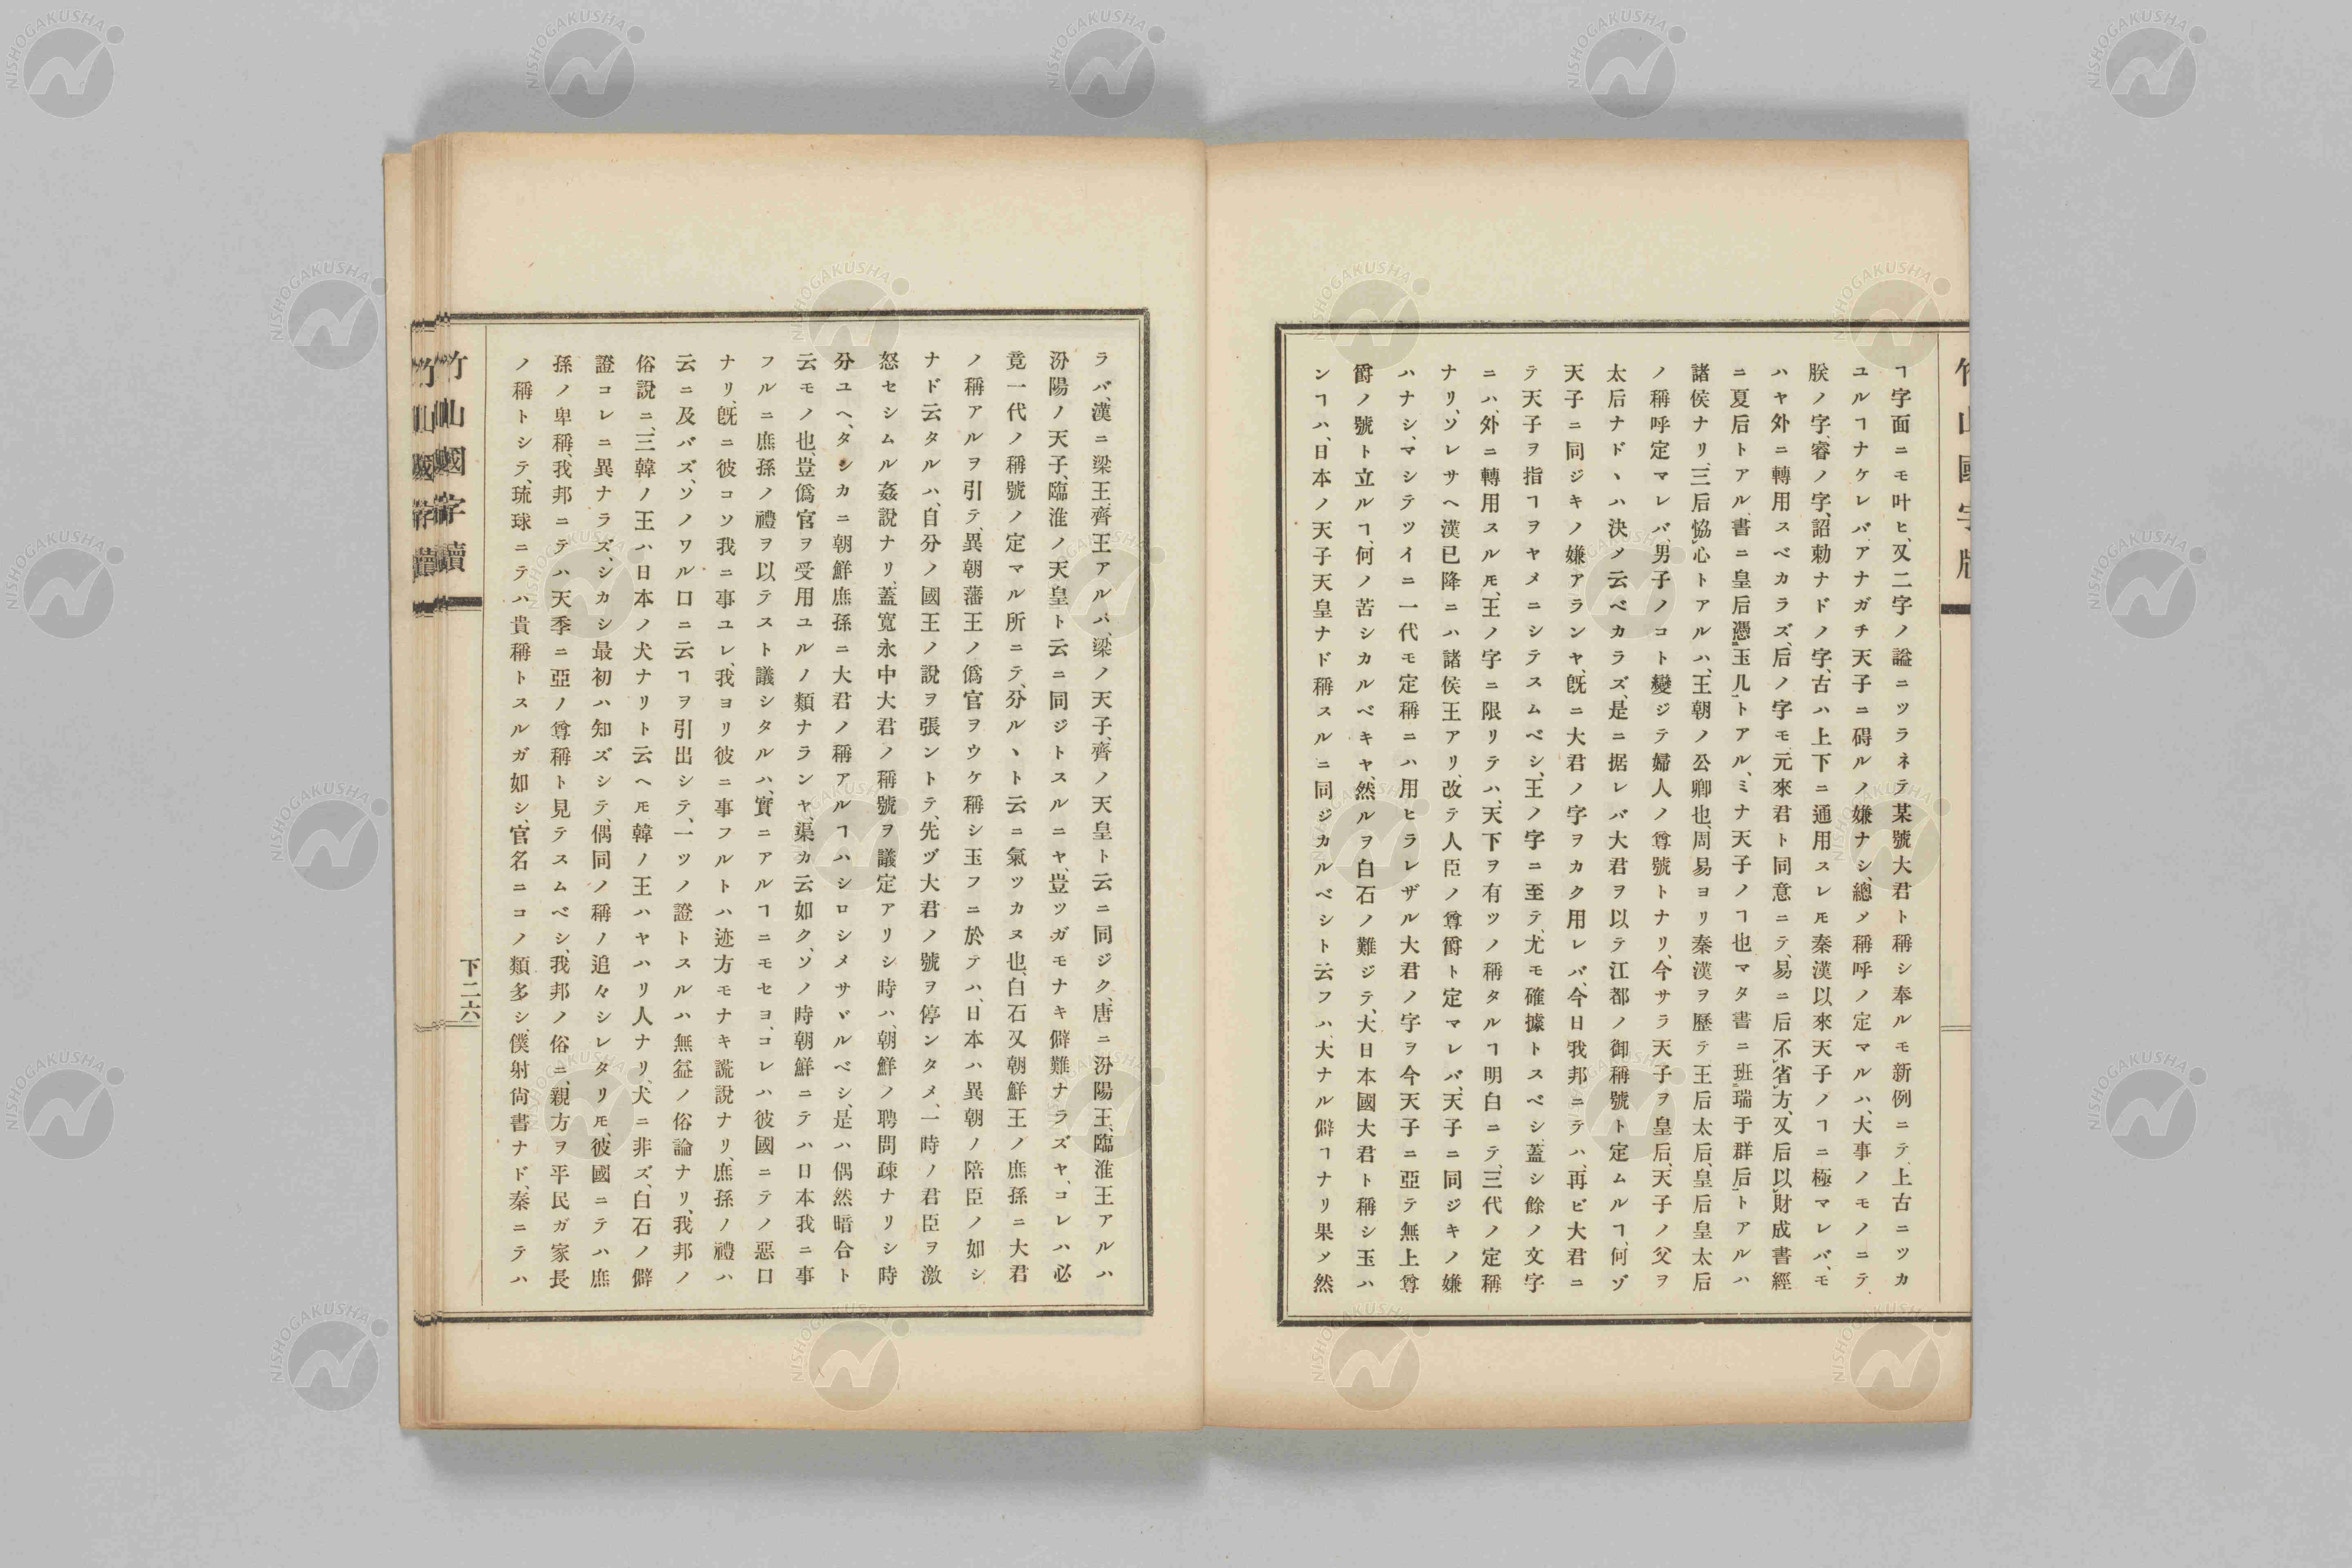 竹山國字牘
ヿ字面ニモ叶ヒ、又二字ノ謚ニツラネテ某號大君ト稱シ奉ルモ新例ニテ、上古ニツカ
ユルヿナケレバ、アナガチ天子ニ碍ルノ嫌ナシ、總メ稱呼ノ定マルハ、大事ノモノニテ、
朕ノ字、睿ノ字、詔勅ナドノ字、古ハ上下ニ通用スレㇺ秦漢以來天子ノヿニ極マレバ、モ
ハヤ外ニ轉用スベカラズ、后ノ字モ元來君ト同意ニテ、易ニ后不省方、又后以財成書經
ニ夏后トアル、書ニ皇后憑玉几トアル、ミナ天子ノヿ也マタ書ニ班瑞于群后トアルハ
諸侯ナリ、三后恊心トアルハ、王朝ノ公卿也、周易ヨリ秦漢ヲ歷テ王后太后、皇后皇太后
ノ稱呼定マレバ、男子ノコト變ジテ婦人ノ尊號トナリ、今サラ天子ヲ皇后、天子ノ父ヲ
太后ナドヽハ決メ云ベカラズ、是ニ据レバ大君ヲ以テ江都ノ御稱號ト定ムルヿ、何ゾ
天子ニ同ジキノ嫌アランヤ、既ニ大君ノ字ヲカク用レバ、今日我邦ニテハ、再ビ大君ニ
テ天子ヲ指ヿヲヤメニシテスムベシ、王ノ字ニ至テ、尤モ確據トスベシ、蓋シ餘ノ文字
ニハ、外ニ轉用スルㇺ、王ノ字ニ限リテハ、天下ヲ有ツノ稱タルヿ明白ニテ、三代ノ定稱
ナリ、ソレサヘ漢已降ニハ諸侯王アリ、改テ人臣ノ尊爵ト定マレバ、天子ニ同ジキノ嫌
ハナシ、マシテツイニ一代モ定稱ニハ用ヒラレザル大君ノ字ヲ今天子ニ亞テ無上尊
爵ノ號ト立ルヿ、何ノ苦シカルベキヤ、然ルヲ白石ノ難ジテ、大日本國大君ト稱シ玉ハ
ンヿハ、日本ノ天子天皇ナド稱スルニ同ジカルベシト云フハ、大ナル僻ヿナリ果メ然
ラバ、漢ニ梁王齊王アルハ、梁ノ天子、齊ノ天皇ト云ニ同ジク、唐ニ汾陽王、臨淮王アルハ
汾陽ノ天子、臨淮ノ天皇ト云ニ同ジトスルニヤ、豈ツガモナキ僻難ナラズヤ、コレハ必
竟一代ノ稱號ノ定マル所ニテ、分ルヽト云ニ氣ツカヌ也、白石又朝鮮王ノ庶孫ニ大君
ノ稱アルヲ引テ、異朝藩王ノ僞官ヲウケ稱シ玉フニ於テハ、日本ハ異朝ノ陪臣ノ如シ
ナド云タルハ、自分ノ國王ノ說ヲ張ントテ、先ヅ大君ノ號ヲ停ンタメ、一時ノ君臣ヲ激
怒セシムル姦說ナリ、蓋寬永中大君ノ稱號ヲ議定アリシ時ハ、朝鮮ノ聘問疎ナリシ時
分ユヘ、タシカニ朝鮮庶孫ニ大君ノ稱アルヿハシロシメサヾルベシ、是ハ偶然暗合ト
云モノ也、豈僞官ヲ受用ユルノ類ナランヤ、渠カ云如ク、ソノ時朝鮮ニテハ日本我ニ事
フルニ庶孫ノ禮ヲ以テスト議シタルハ、實ニアルヿニモセヨ、コレハ彼國ニテノ惡口
ナリ、既ニ彼コソ我ニ事ユレ、我ヨリ彼ニ事フルトハ迹方モナキ謊說ナリ、庶孫ノ禮ハ
云ニ及バズ、ソノワル口ニ云ヿヲ引出シテ、一ツノ證トスルハ無益ノ俗論ナリ、我邦ノ
俗說ニ、三韓ノ王ハ日本ノ犬ナリト云ヘㇺ韓ノ王ハヤハリ人ナリ、犬ニ非ズ、白石ノ僻
證コレニ異ナラズ、シカシ最初ハ知ズシテ、偶同ノ稱ノ追々シレタリㇺ、彼國ニテハ庶
孫ノ卑稱、我邦ニテハ天季ニ亞ノ尊稱ト見テスムベシ、我邦ノ俗ニ、親方ヲ平民ガ家長
ノ稱トシテ、琉球ニテハ貴稱トスルガ如シ、官名ニコノ類多シ、僕射尙書ナド、秦ニテハ
竹山國字牘
下二六